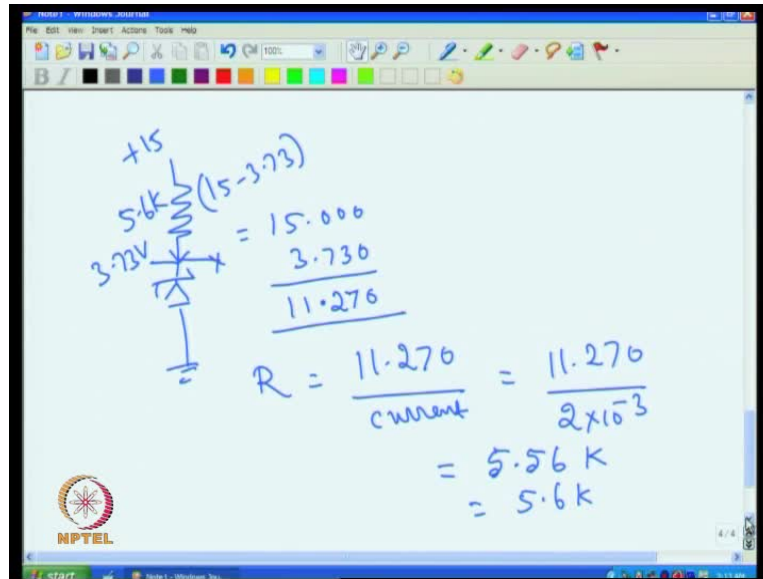 Note1 - Windows Journal
File Edit View Insert Actions Tools Help
100%
B I
+15
5.6K (15-3.73)
3.73V
= 15.000
3.730
11.270
R = 11.270 / current = 11.270 / 2×10⁻³
= 5.56 K
= 5.6K
NPTEL
4/4
start
Note1 - Windows Jou...
3:13 AM